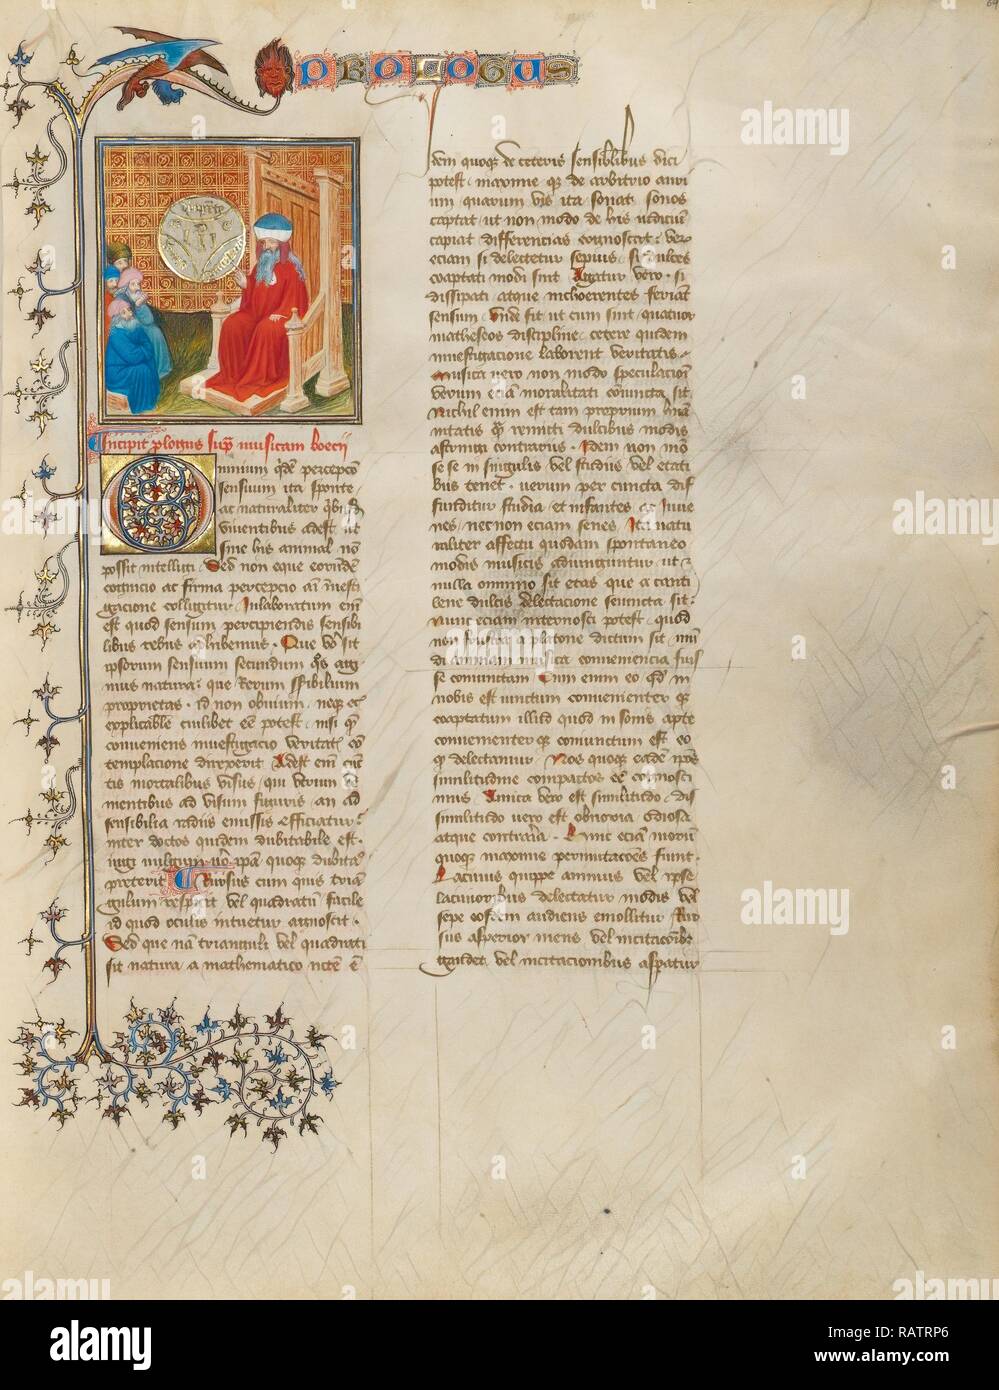 PROLOGUS
Incipit plogus sup musicam boecij
Omnium qdē percepcō
sensuum ita sponte
ac naturaliter qbusdā
viventibus adest ut
sine his animal nō
possit intelligi. Sed non eque eorūdē
cognicio ac firma percepcio aī īvesti
gacione colligitur. Inlaboratum enī
est quod sensum percipiendis sensibi
libus rebus adhibemus. Que vero sit
ipsorum sensuum secundum qōs agi
mus natura: que rerum sēsibilium
proprietas. id non obvium, neque et
explicabile cuilibet eē potest, nisi quē
conveniens investigacio veritatis cō
templacione direxerit. Adest enī cūc
tis mortalibus visus, qui utrum ve
nientibus ad visum figuris, an ad
sensibilia radiis emissis efficiatur:
inter doctos quidem dubitabile est.
vulgum vero ipsa quoque dubitacō
preterit. Rursus cum quis trian
gulum respicit vel quadratum facile
id quod oculis intuetur agnoscit.
Sed que nam trianguli vel quadrati
sit natura a mathematico necesse ē
Idem quoque de ceteris sensibilibus dici
potest. maxime que de arbitrio auri
um quarum vis ita sonat sonos
captat, ut non modo de his iudiciū
capiat differencias cognoscat: ver
eciam si delectetur sepius, si dulces
coaptati modi sint. Agatur vero. si
dissipati atque incoherentes feriant
sensum. Unde fit ut cum sint quatuor
matheseos discipline, cetere quidem
investigacione laborent veritatis.
Musica vero non modo speculacioni
verum eciā moralitati coniuncta sit.
Nichil enim est tam proprium hūa
nitatis qm̄ remitti dulcibus modis
astringi contrariis. Idem non mō
sese in singulis vel studiis vel etati
bus tenet. verum per cuncta dif
funditur studia, et infantes ac iuve
nes, nec non eciam senes. Ita natu
raliter affectu quodam spontaneo
modis musicis adiunguntur. ut
nulla omnino sit etas que a canti
lene dulcis delectacione seiuncta sit.
Nunc eciam internosci potest, quod
non frustra a platone dictum sit, mū
di animam musica conveniencia fuis
se coniunctam. Cum enim eo qd in
nobis est iunctum convenienter que
coaptatum illud quod in sonis apte
convenienterque coniunctum est eo
que delectamur. Nos quoque eadē ipōs
similitudine compactos eē cognosci
mus. Amica vero est similitudo, dis
similitudo vero est obnoxia odiosa
atque contraria. Hinc eciam morū
quoque maxime permutacoēs fiunt.
Lacivus quippe animus vel ipse
lacivioribus delectatur modis vel
sepe eosdem audiens emollitur. Rur
sus asperior mens vel incitacoībus
gaudet, vel incitacionibus aspatur
alamy
alamy
Image ID: RATRP6
www.alamy.com